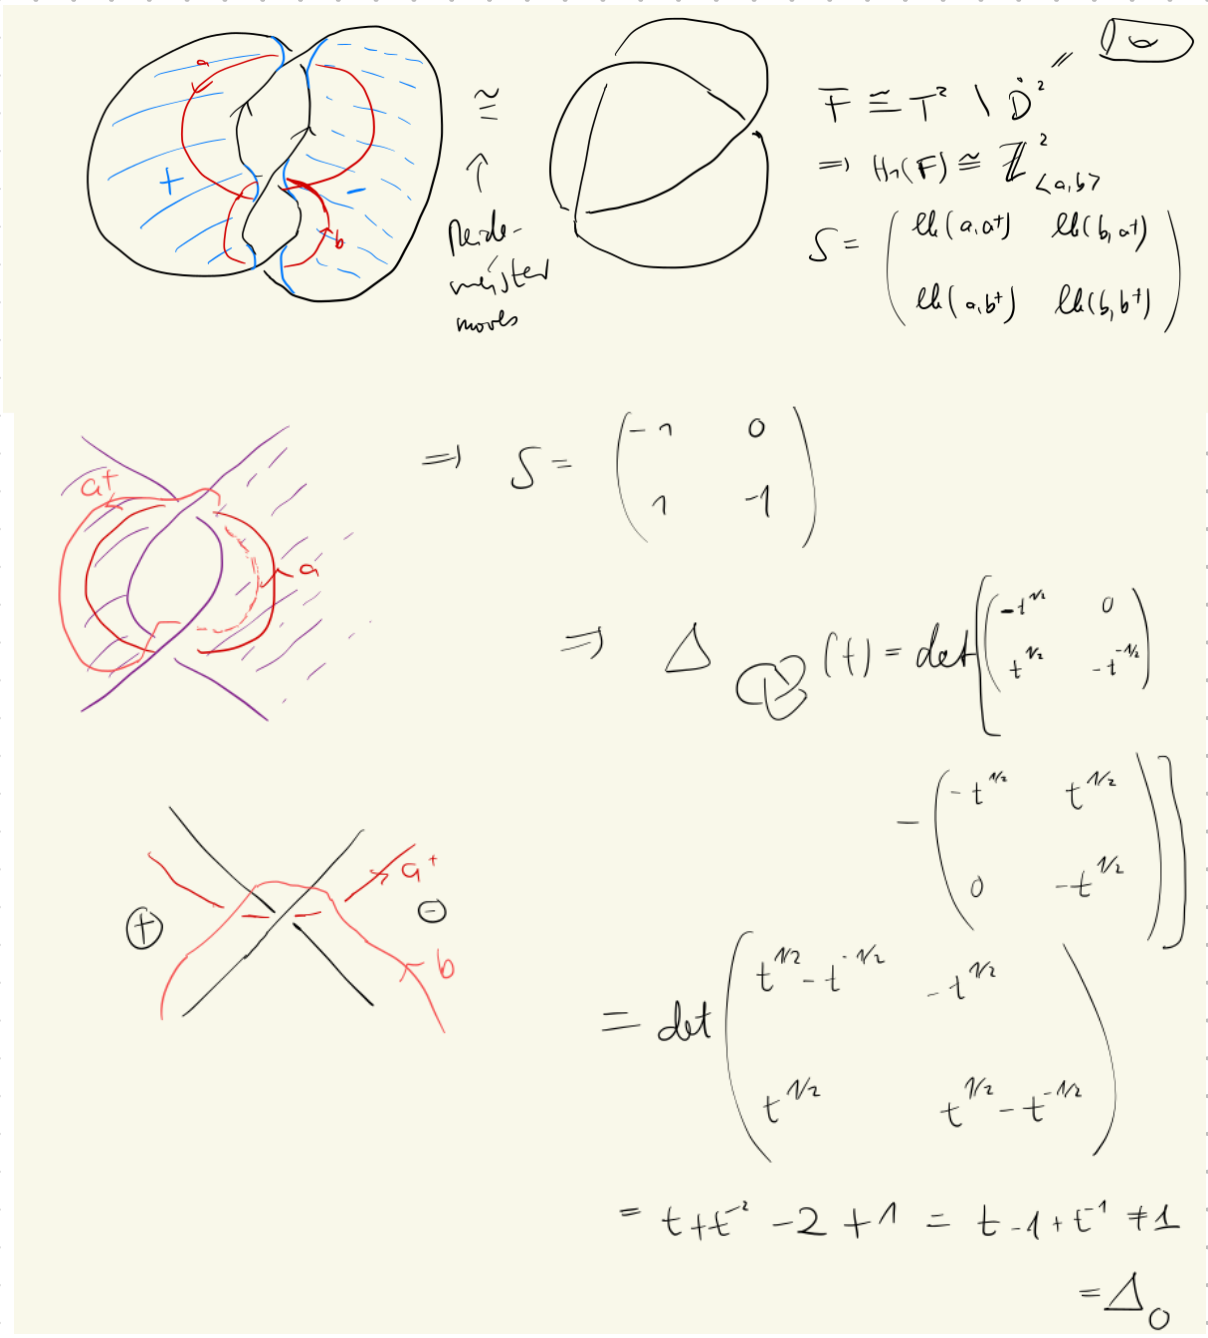 a
+
-
b
≅
↑
Reide-
meister
moves
F ≅ T² \ D̊²
⇒ H₁(F) ≅ ℤ²<a,b>
S = ( lk(a,a⁺) lk(b,a⁺)
lk(a,b⁺) lk(b,b⁺) )
a⁺
a
⇒ S = ( -1 0
1 -1 )
⇒ Δ (t) = det [ ( -t^{1/2} 0
t^{1/2} -t^{-1/2} )
- ( -t^{1/2} t^{1/2}
0 -t^{1/2} ) ]
a⁺
⊕
⊖
b
= det ( t^{1/2} - t^{-1/2} -t^{1/2}
t^{1/2} t^{1/2} - t^{-1/2} )
= t + t^{-2} - 2 + 1 = t - 1 + t^{-1} ≠ 1
= Δ_O